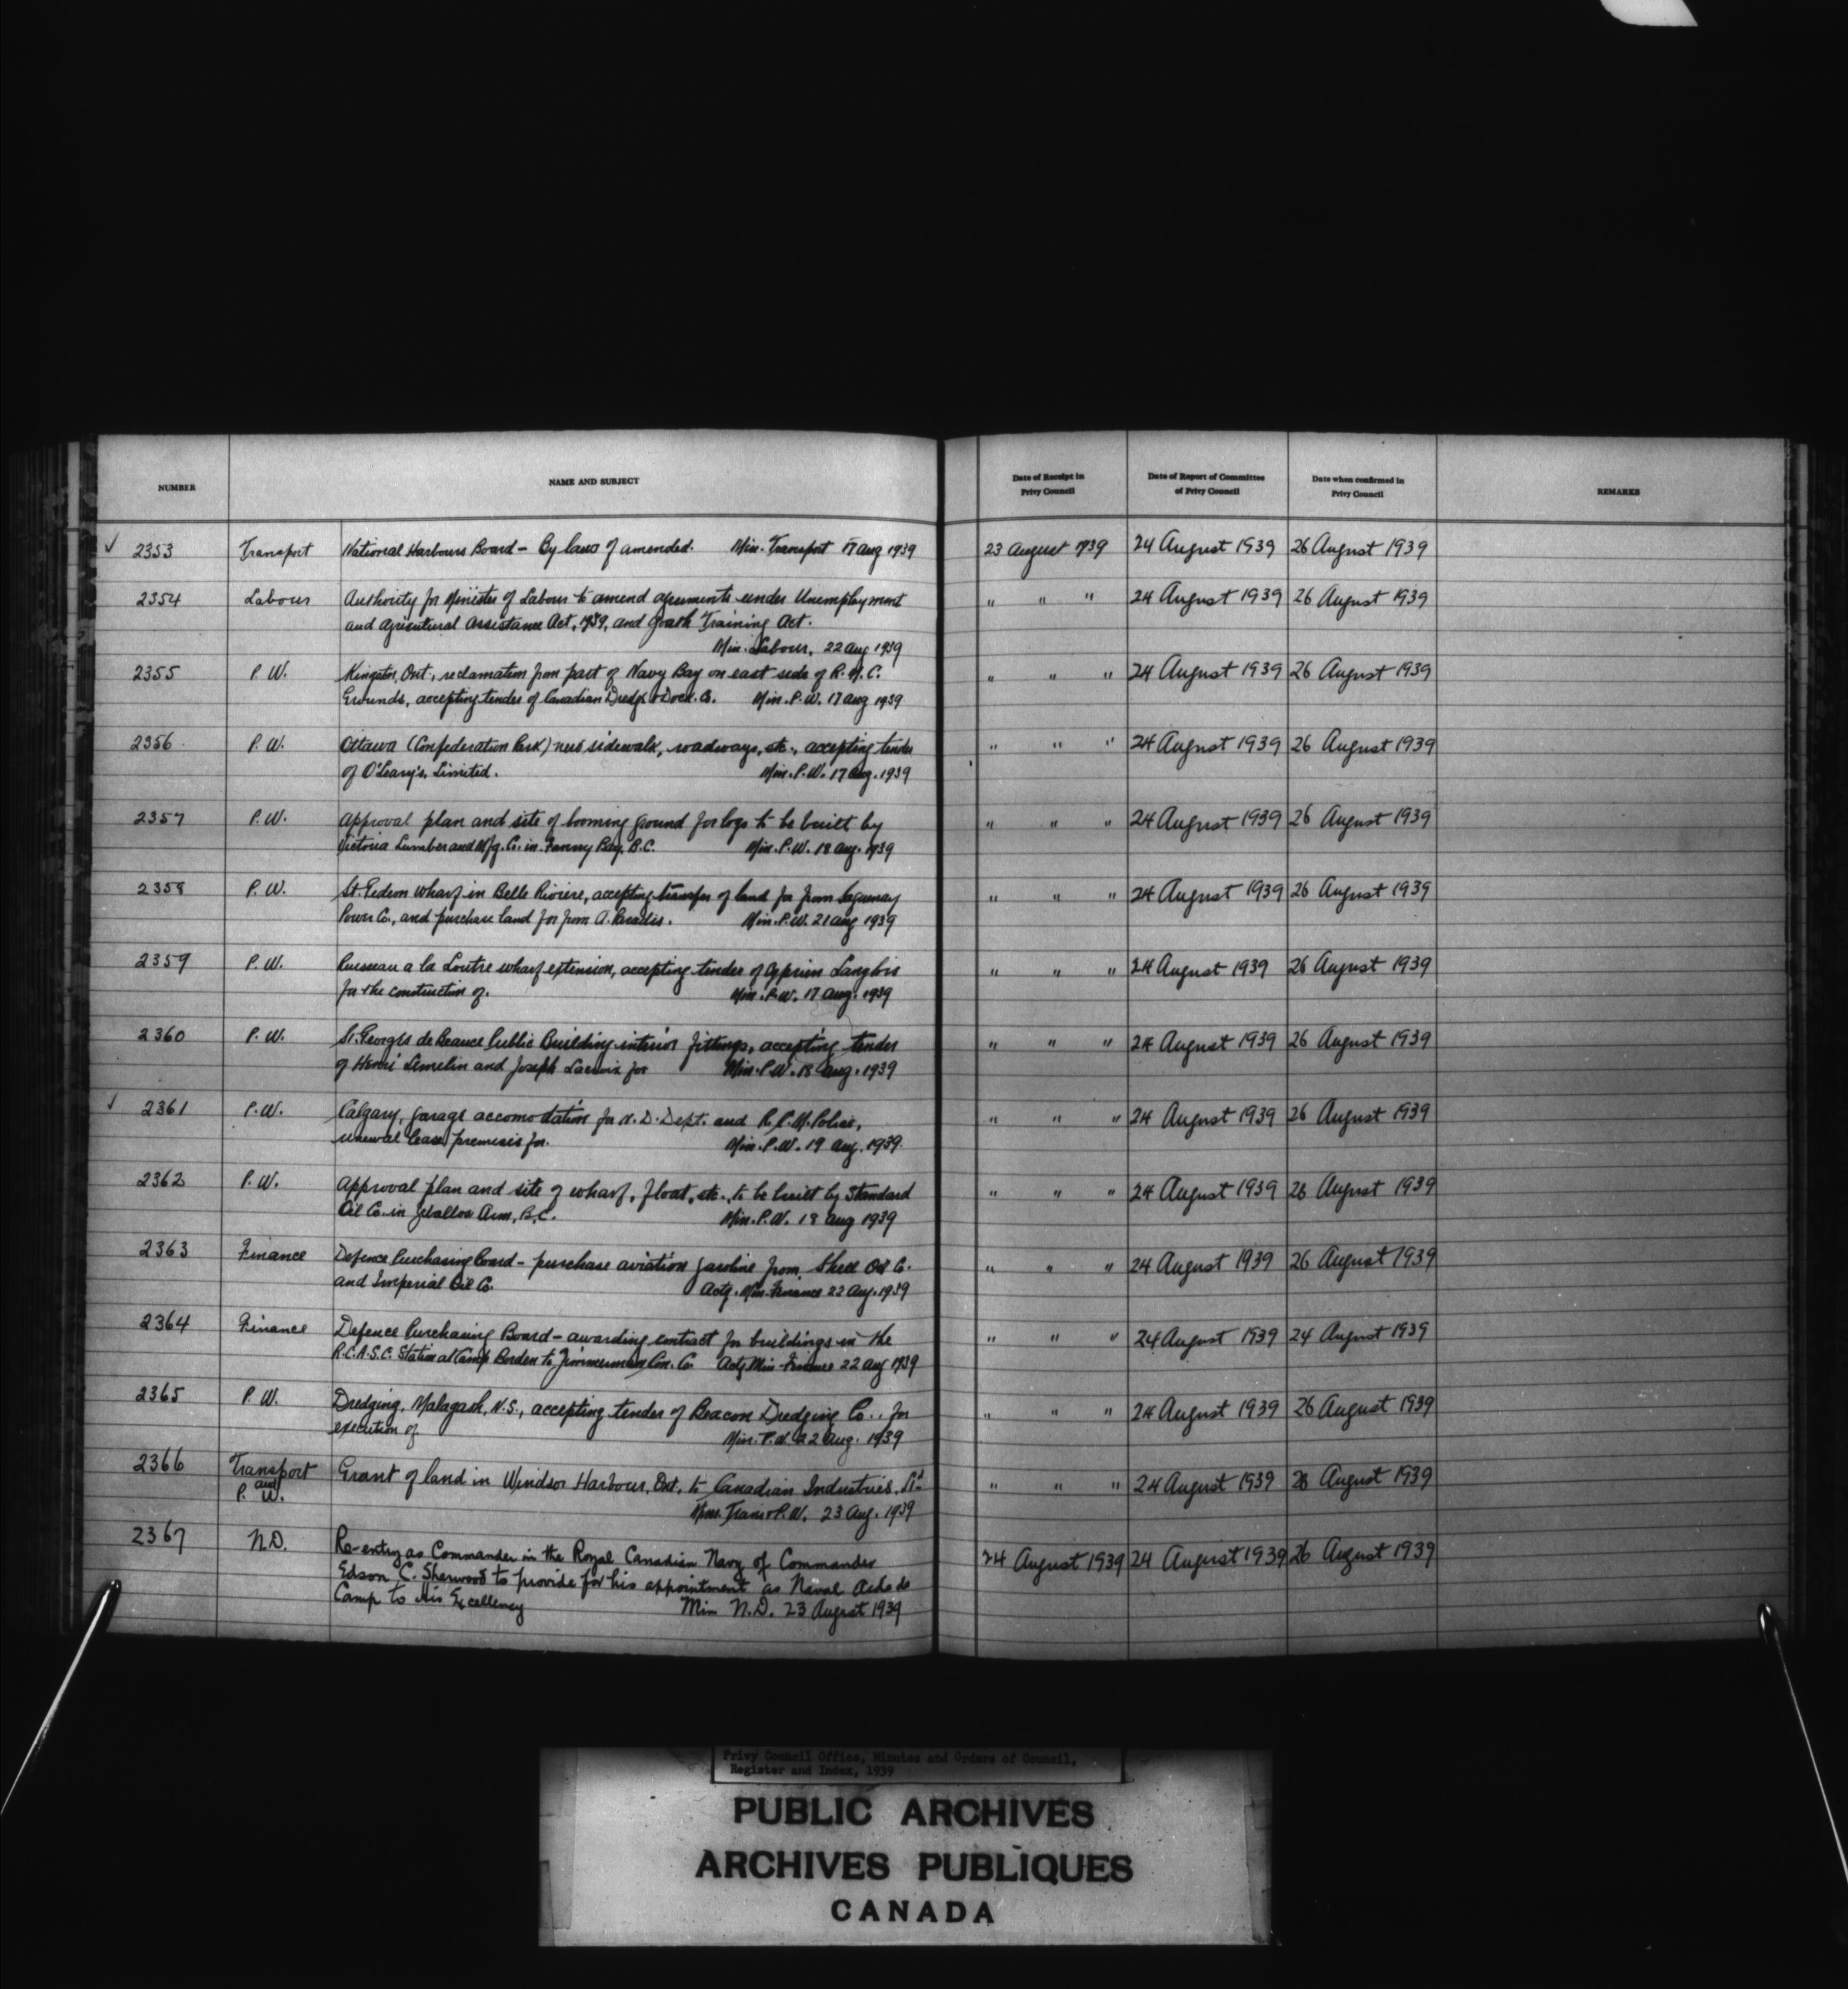 NUMBER NAME AND SUBJECT Date of Receipt in Privy Council Date of Report of Committee of Privy Council Date when confirmed in Privy Council REMARKS
✓ 2353 Transport National Harbours Board - By laws of amended. Min. Transport 17 Aug 1939 23 August 1939 24 August 1939 26 August 1939
2354 Labour Authority for Minister of Labour to amend agreements under Unemployment " " " 24 August 1939 26 August 1939
and Agricultural Assistance Act, 1939, and Youth Training Act.
Min. Labour, 22 Aug 1939
2355 P. W. Kingston, Ont., reclamation from part of Navy Bay on east side of R.M.C. " " " 24 August 1939 26 August 1939
Grounds, accepting tender of Canadian Dredge & Dock. Co. Min. P. W. 17 Aug 1939
2356 P. W. Ottawa (Confederation Park) new sidewalk, roadways, etc., accepting tender " " " 24 August 1939 26 August 1939
of O'Leary's, Limited. Min. P. W. 17 Aug. 1939
2357 P. W. Approval plan and site of booming ground for logs to be built by " " " 24 August 1939 26 August 1939
Victoria Lumber and Mfg. Co. in Fanny Bay, B.C. Min. P. W. 18 Aug. 1939
2358 P. W. St. Gedeon wharf in Belle Riviere, accepting transfer of land for from Saguenay " " " 24 August 1939 26 August 1939
Power Co., and purchase land for from A. Paradis. Min. P. W. 21 Aug 1939
2359 P. W. Ruisseau a la Loutre wharf extension, accepting tender of Cyprien Langlois " " " 24 August 1939 26 August 1939
for the construction of. Min. P. W. 17 Aug. 1939
2360 P. W. St. Georges de Beauce Public Building interior fittings, accepting tender " " " 24 August 1939 26 August 1939
of Henri Lemelin and Joseph Lacroix for Min. P. W. 18 Aug. 1939
✓ 2361 P. W. Calgary, garage accomodation for N. D. Dept. and R. C. M. Police, " " " 24 August 1939 26 August 1939
renewal lease premises for. Min. P. W. 19 Aug. 1939
2362 P. W. Approval plan and site of wharf, float, etc., to be built by Standard " " " 24 August 1939 26 August 1939
Oil Co. in Arm, B.C. Min. P. W. 18 Aug 1939
2363 Finance Defence Purchasing Board - purchase aviation gasoline from Shell Oil Co. " " " 24 August 1939 26 August 1939
and Imperial Oil Co. Actg. Min. Finance 22 Aug. 1939
2364 Finance Defence Purchasing Board - awarding contract for buildings in the " " " 24 August 1939 24 August 1939
R.C.A.S.C. Station at Camp Borden to Jimmerman Con. Co. Actg Min. Finance 22 Aug 1939
2365 P. W. Dredging, Malagash, N.S., accepting tender of Beacon Dredging Co., for " " " 24 August 1939 26 August 1939
execution of Min. P. W. 22 Aug. 1939
2366 Transport and P. W. Grant of land in Windsor Harbour, Ont. to Canadian Industries, Ltd " " " 24 August 1939 26 August 1939
Mins. Trans & P.W. 23 Aug. 1939
2367 N.D. Re-entry as Commander in the Royal Canadian Navy of Commander 24 August 1939 24 August 1939 26 August 1939
Edson C. Sherwood to provide for his appointment as Naval Aide de
Camp to His Excellency Min N.D. 23 August 1939
Privy Council Office, Minutes and Orders of Council,
Register and Index, 1939
PUBLIC ARCHIVES
ARCHIVES PUBLIQUES
CANADA